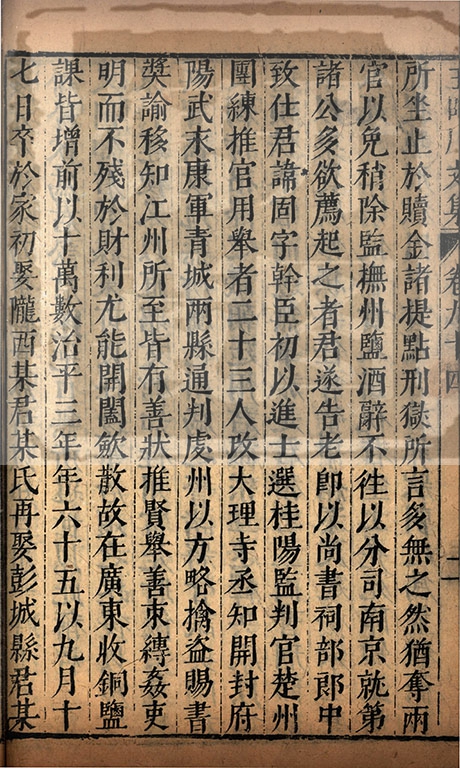 王臨川文集 卷九十四 二
所坐止於贖金諸提點刑獄所言多無之然猶奪兩
官以免稍除監撫州鹽酒辭不徃以分司南京就第
諸公多欲薦起之者君遂告老卽以尚書祠部郎中
致仕君諱固字幹臣初以進士選桂陽監判官楚州
團練推官用舉者二十三人改大理寺丞知開封府
陽武末康軍青城兩縣通判處州以方略擒盜賜書
奬諭移知江州所至皆有善狀推賢舉善束縛姦吏
明而不殘於財利尤能開闔歛散故在廣東收銅鹽
課皆增前以十萬數治平三年年六十五以九月十
七日卒於家初娶隴西某君某氏再娶彭城縣君某